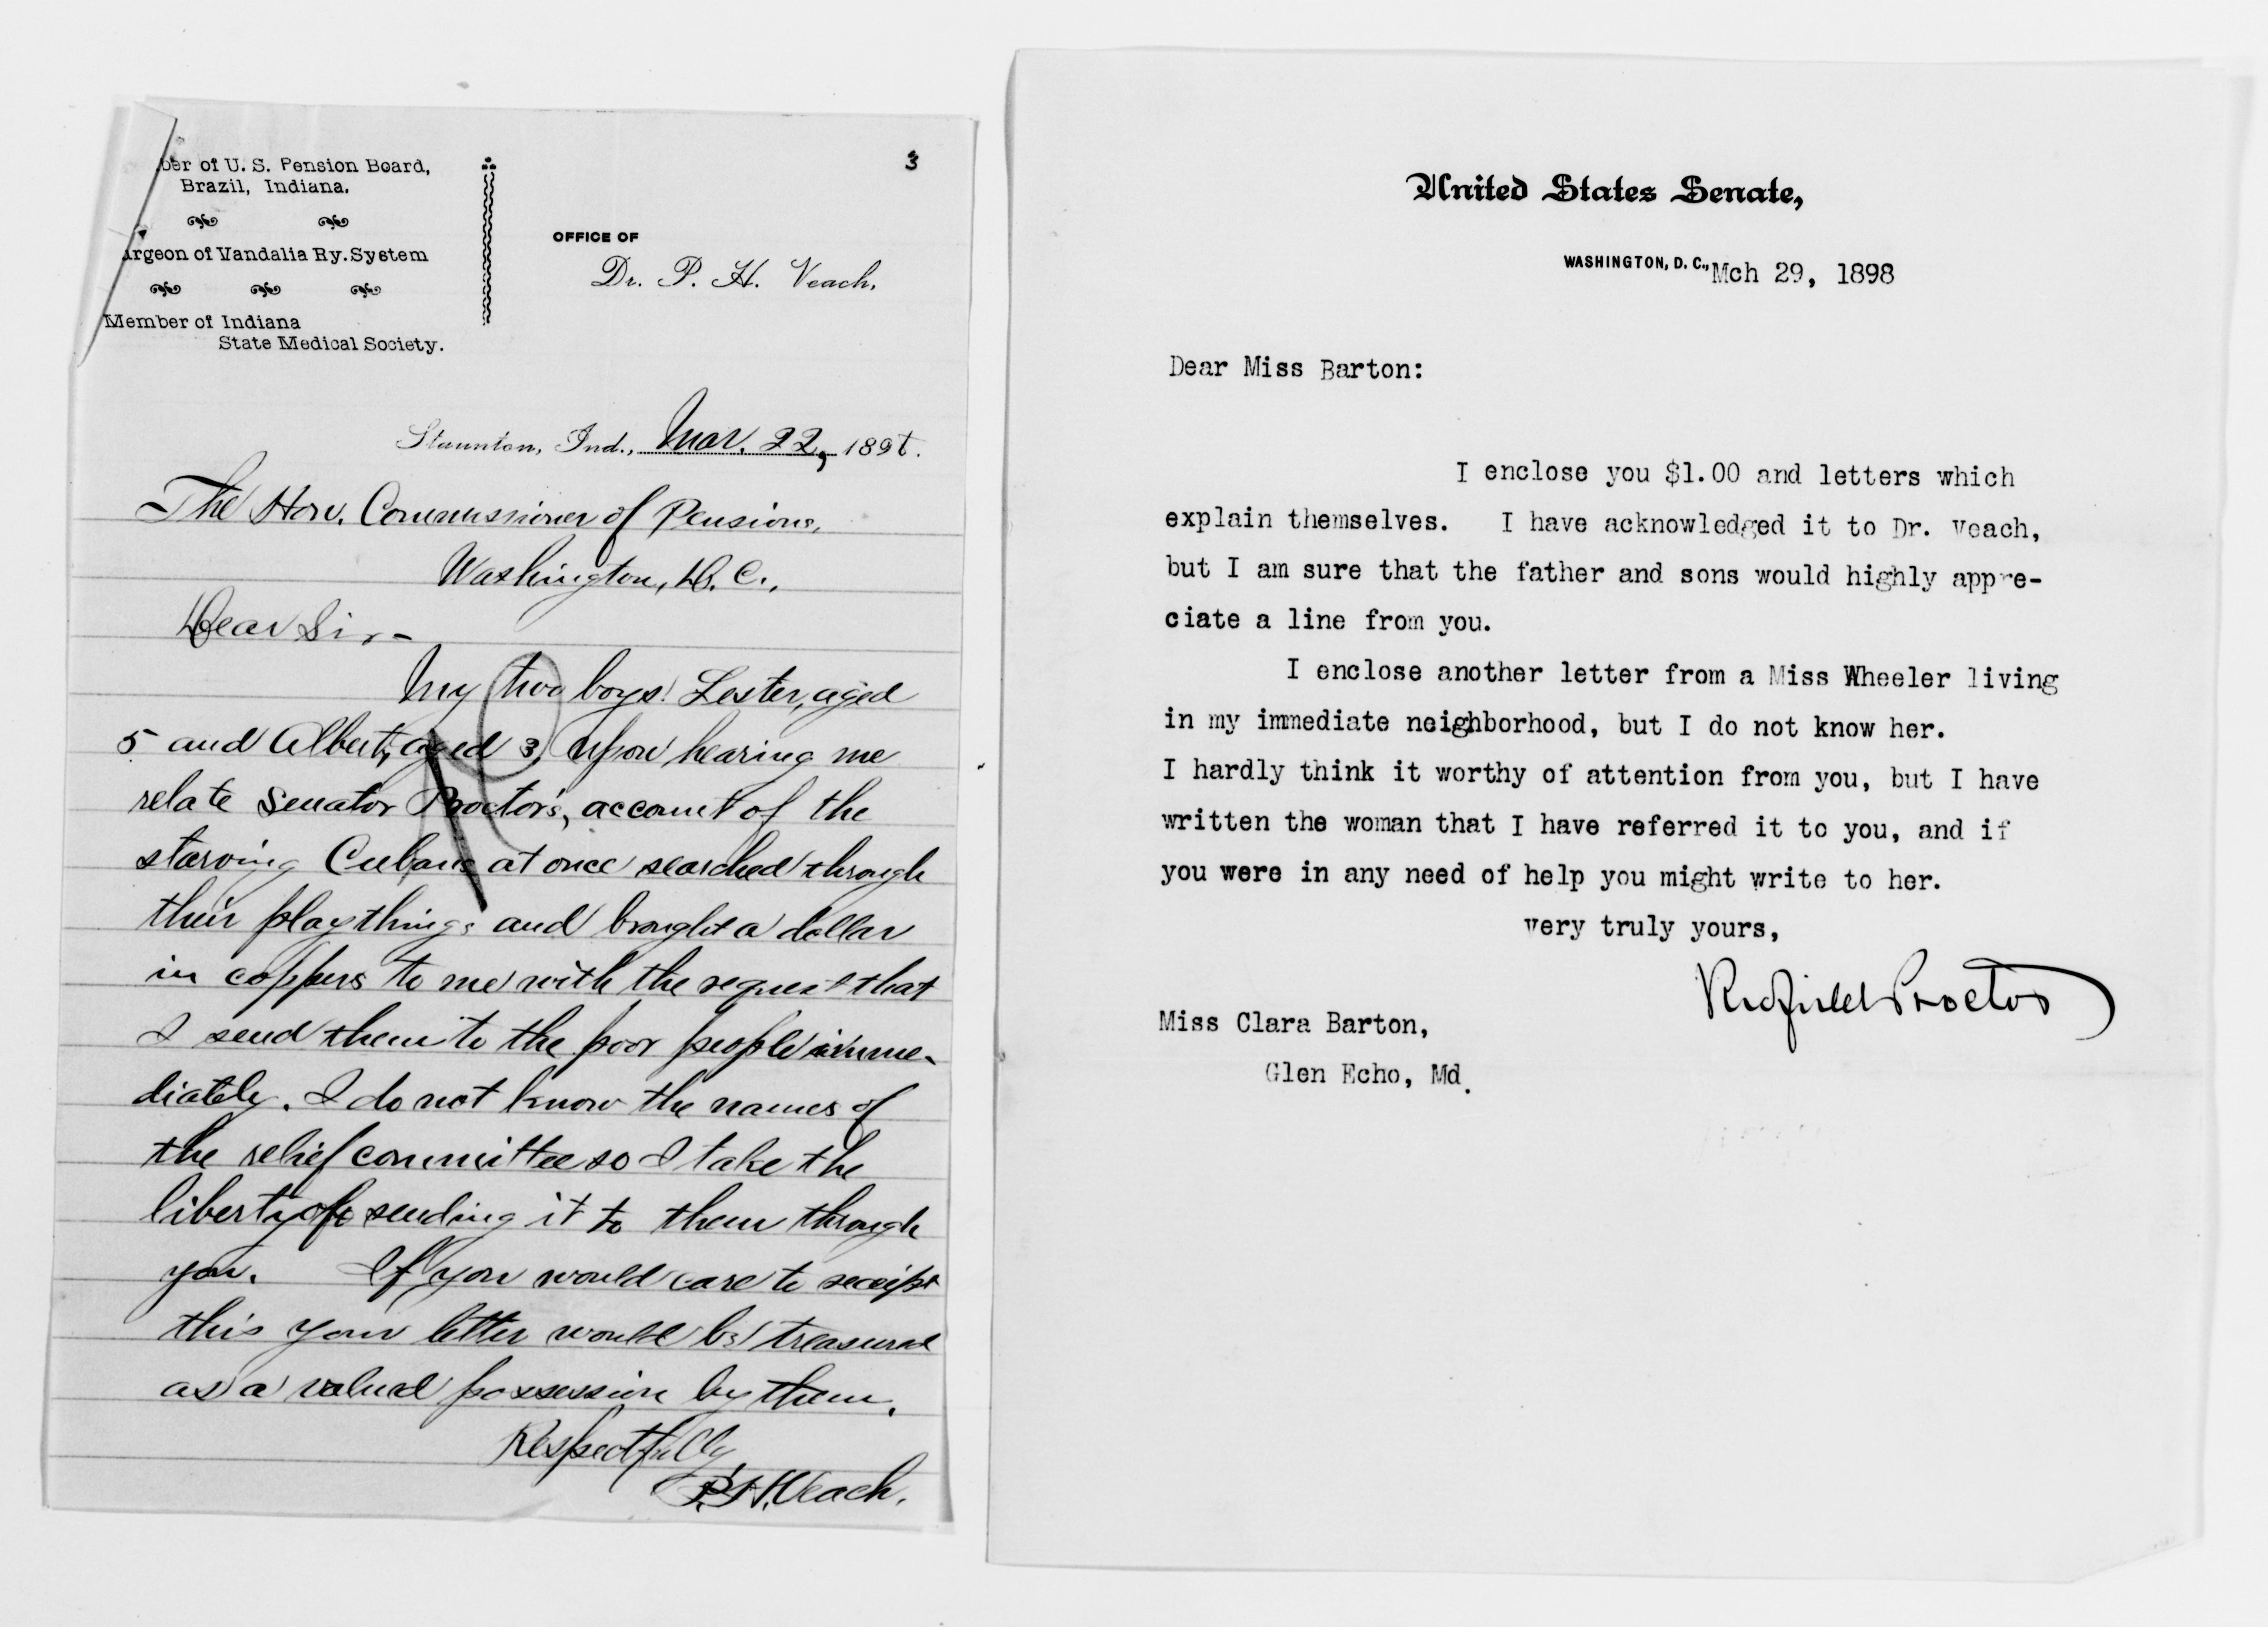 ber of U. S. Pension Board,
Brazil, Indiana.
urgeon of Vandalia Ry. System
Member of Indiana
State Medical Society.
3
OFFICE OF
Dr. P. H. Veach,
Staunton, Ind., Mar. 22, 1898.
The Hon. Commissioner of Pensions,
Washington, D. C.,
Dear Sir-
My two boys, Lester, aged
5 and Albert, aged 3, upon hearing me
relate Senator Proctor's, account of the
starving Cubans at once searched through
their playthings and brought a dollar
in coppers to me with the request that
I send them to the poor people imme-
diately. I do not know the names of
the relief committee so I take the
liberty of sending it to them through
you. If you would care to receipt
this your letter would be treasured
as a valued possession by them.
Respectfully
P. H. Veach.
United States Senate,
WASHINGTON, D. C., Mch 29, 1898
Dear Miss Barton:
I enclose you $1.00 and letters which
explain themselves. I have acknowledged it to Dr. Veach,
but I am sure that the father and sons would highly appre-
ciate a line from you.
I enclose another letter from a Miss Wheeler living
in my immediate neighborhood, but I do not know her.
I hardly think it worthy of attention from you, but I have
written the woman that I have referred it to you, and if
you were in any need of help you might write to her.
very truly yours,
Redfield Proctor
Miss Clara Barton,
Glen Echo, Md.